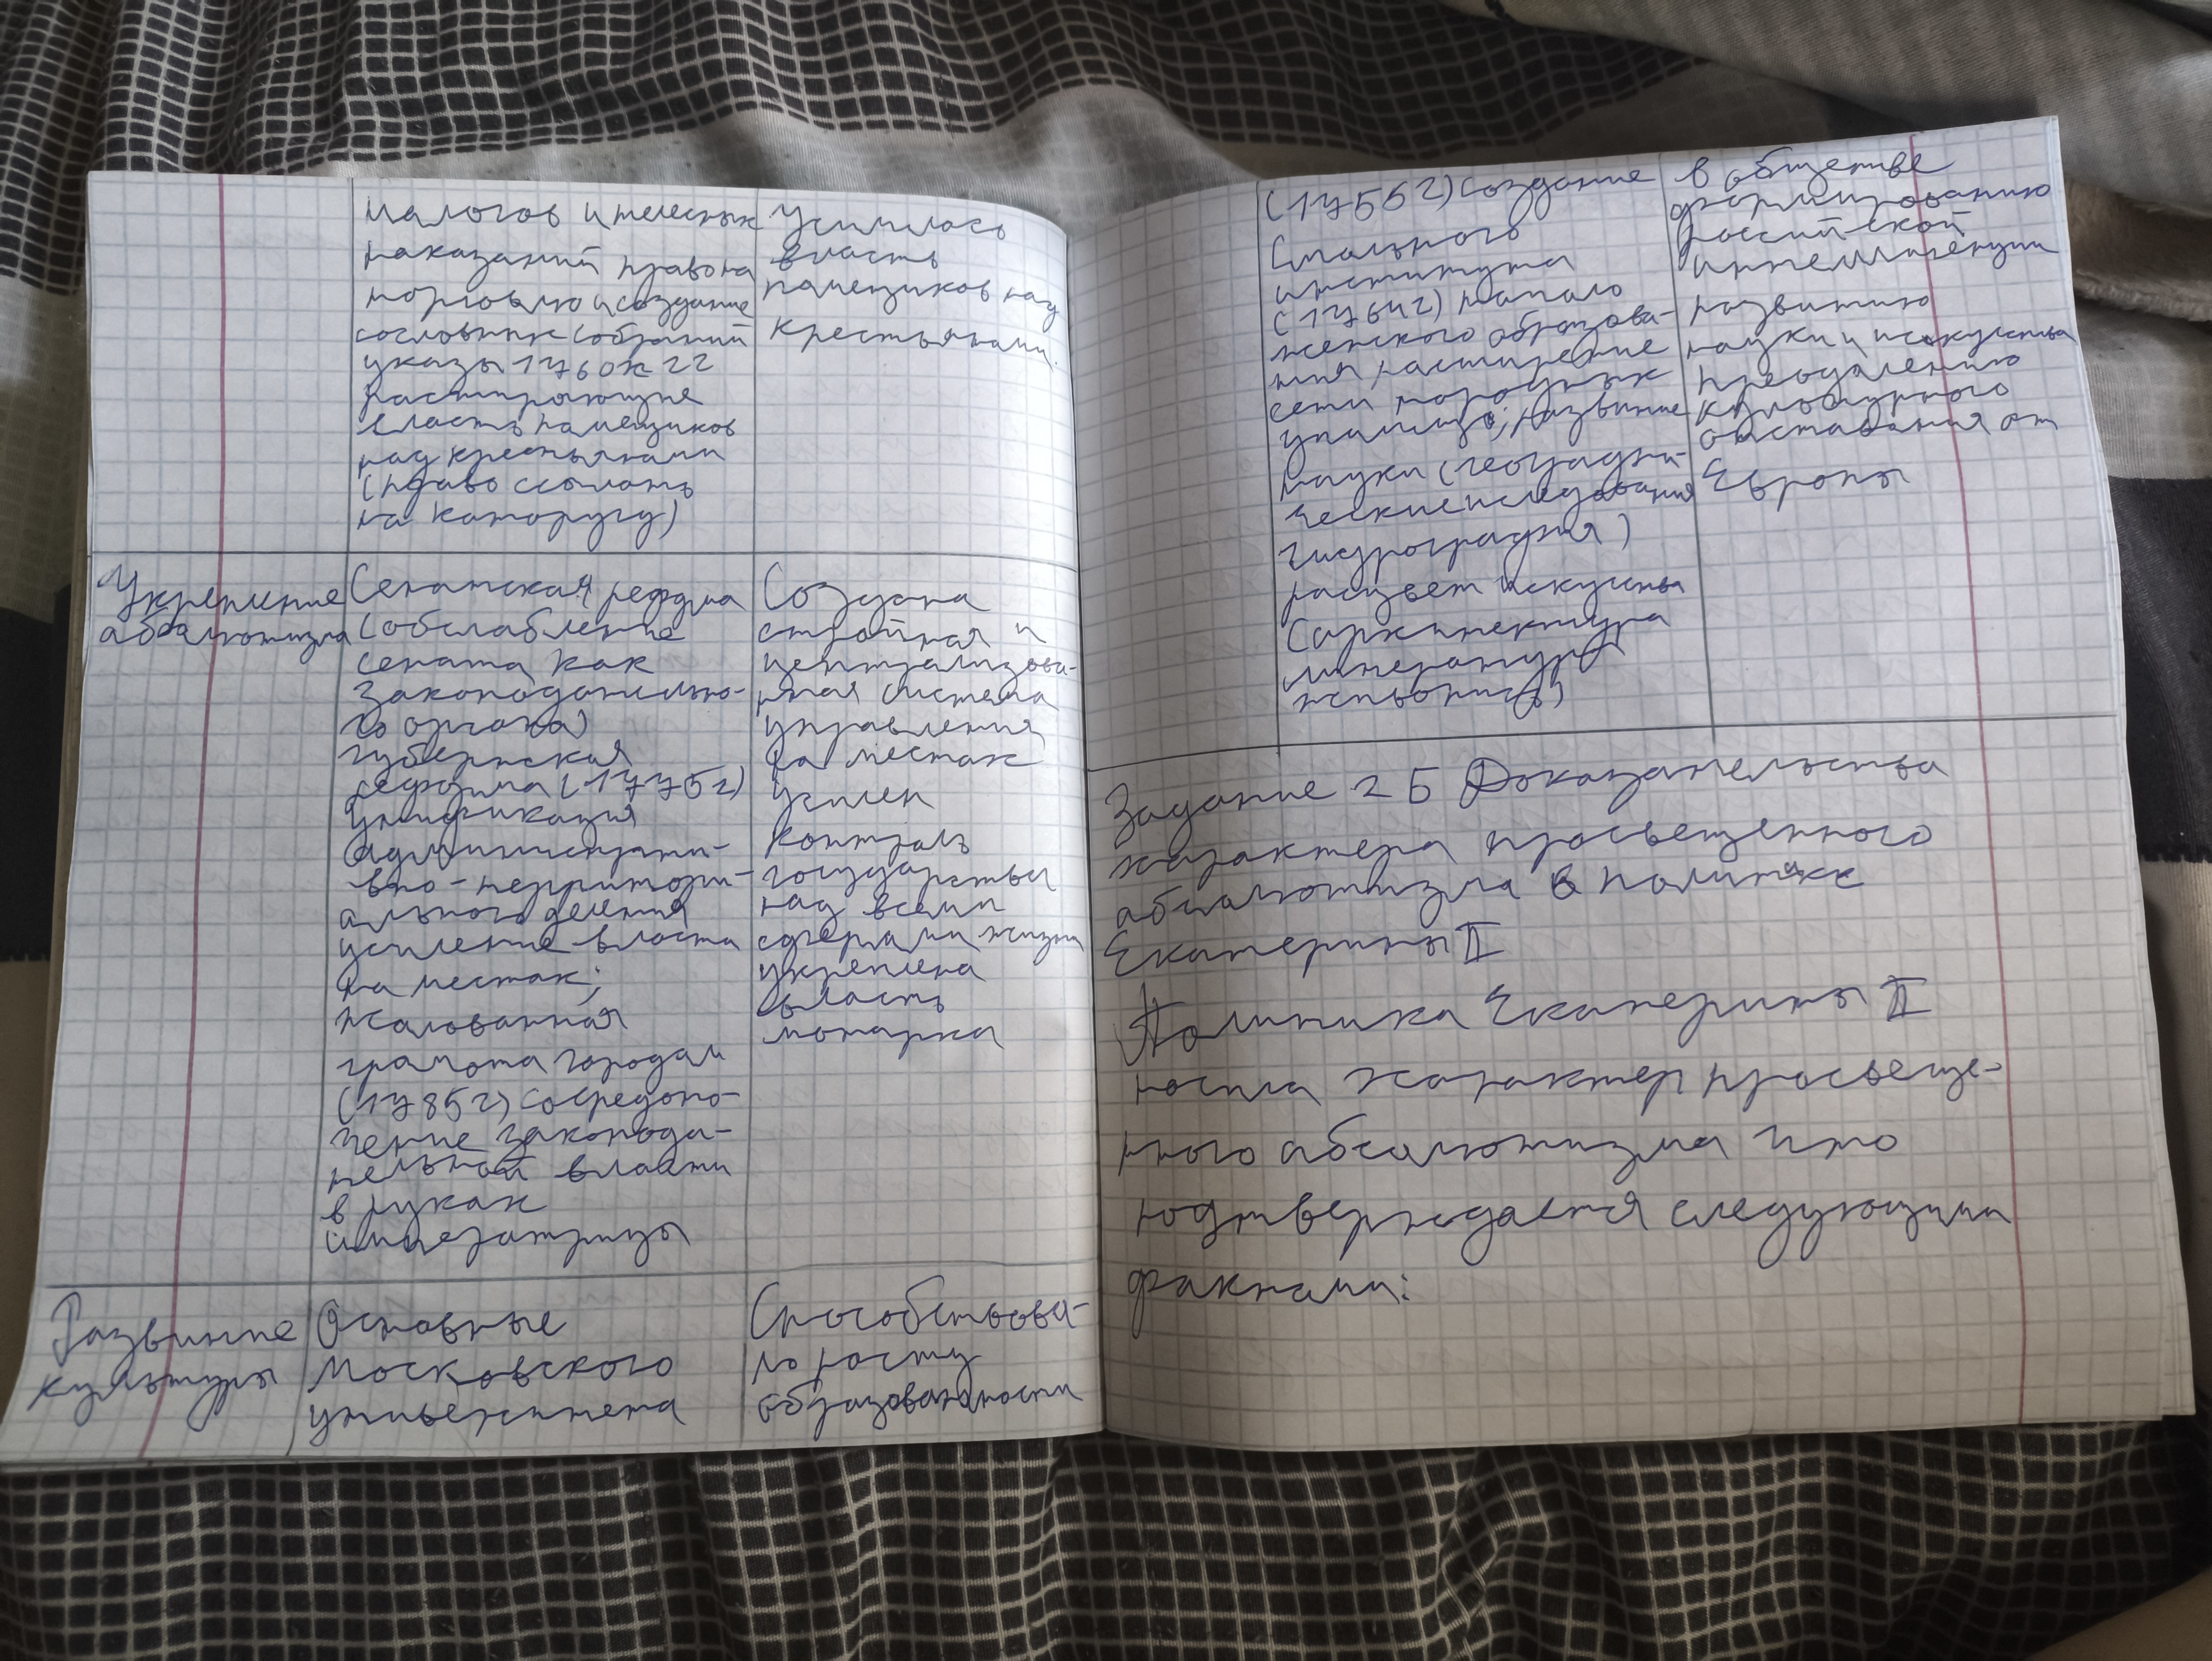 налогов и телесных
наказаний право на
торговлю и создание
сословных собраний
указы 1760х гг
расширяющие
власть помещиков
над крестьянами
(право ссылать
на каторугу)
Усилилась
власть
помещиков над
крестьянами.
Укрепление
абсалютизма
Сенатская реформа
(обслабление
сената как
законодательно-
го органа)
губернская
реформа (1775г)
Унификация
административ-
вно-территори-
ального деления
усиление власти
на местах;
жалованная
грамота городам
(1785г) сосредото-
чение законода-
тельной власти
в руках
императрицы
Создана
стройная и
централизова-
нная система
управления
на местах
усилен
контроль
государства
над всеми
сферами жизни
укреплена
власть
монарха
Развитие
культуры
Основные
Московского
университета
Способствова-
ло росту
образованности
(1755г) создание
Смольного
института
(1764г) начало
женского образова-
ния, расширение
сети народных
училищ; развитие
науки (географи-
ческие исследования
гидрография)
расцвет искуства
(архитектура
литература
живопись)
в обществе
формированию
российской
интеллигенции
развитию
науки и исскуства
преодолению
культурного
отставания от
Европы
Задание 25 Доказательства
характера просвещенного
абсалютизма в политике
Екатерины II
Политика Екатерины II
носила характер просвеще-
нного абсалютизма что
подтверждается следующими
фактами: